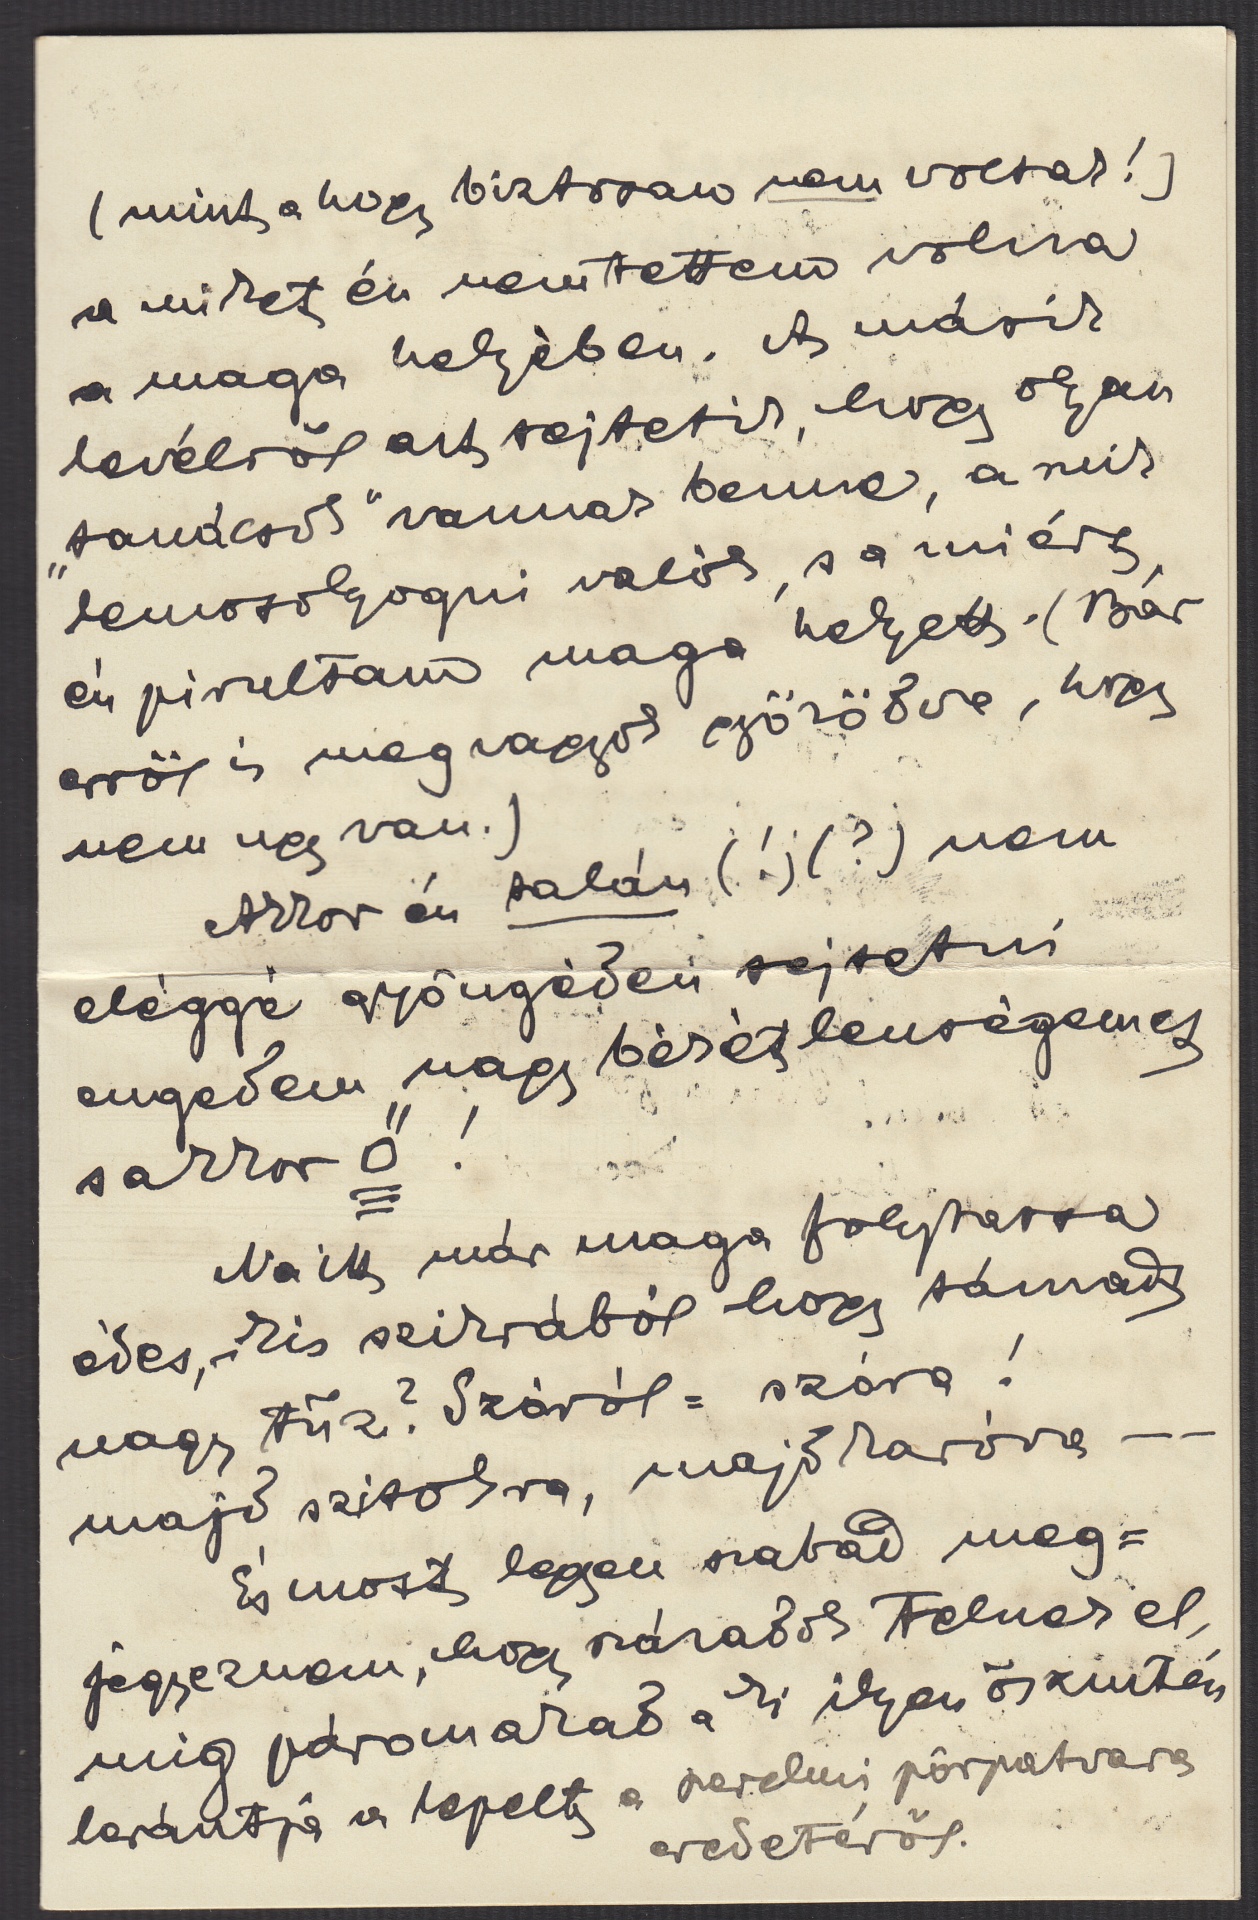 (mint a hogy biztosan nem voltak!)
a miket én nem tettem volna
a maga helyében. A másik
levélről azt sejtetik, hogy olyan
„tanácsok" vannak benne, a mik
lemosolyogni valók, s a miért
én pirultam maga helyett. (Bár
erről is meg vagyok győződve, hogy
nem ugy van.)
Akkor én talán (!) (?) nem
eléggé gyöngéden sejtetni
engedem „nagy békétlenségemet
s akkor Ő" !
Na itt már maga folytassa
édes, „kis szikrából hogy támadt
nagy tűz? Szóról = szóra!
majd szitokra, majd karóra — —
És most legyen szabad meg=
jegyeznem, hogy századok telnek el,
mig páromakad a ki ilyen őszintén
lerántja a leplet a szerelmi pörpatvara
eredetéről.